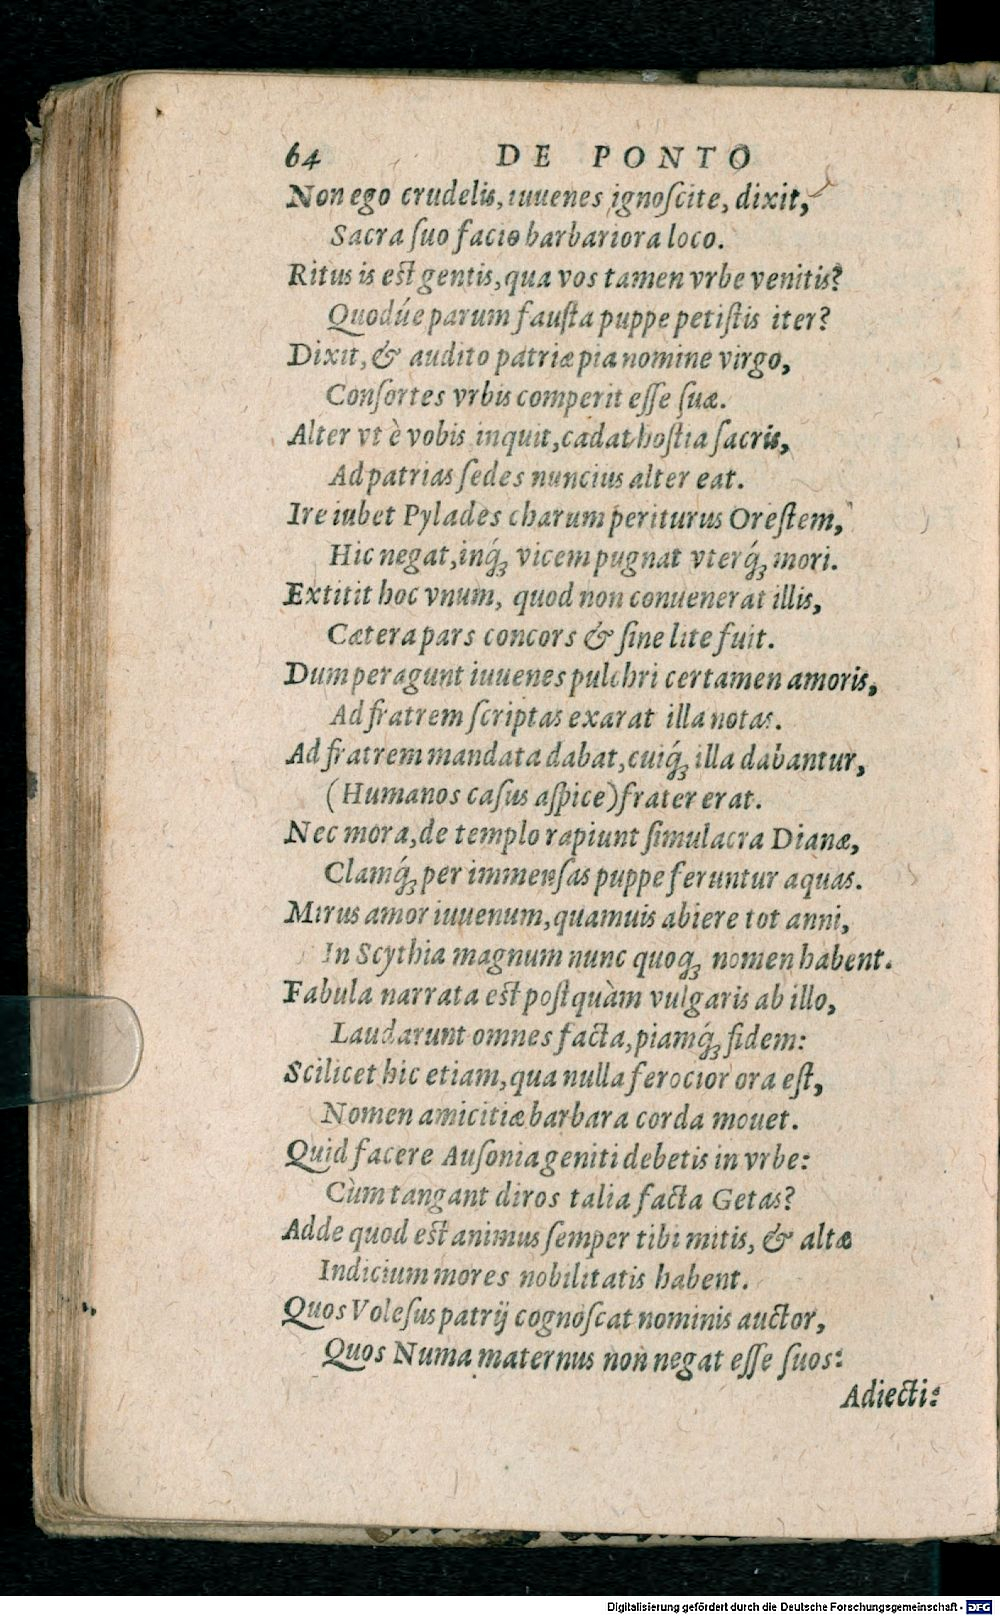 64 DE PONTO
Non ego crudelis, iuuenes ignoſcite, dixit,
Sacra ſuo facio barbariora loco.
Ritus is est gentis, qua vos tamen vrbe venitis?
Quodúe parum fauſta puppe petiſtis iter?
Dixit, & audito patriæ pia nomine virgo,
Conſortes vrbis comperit eſſe ſuæ.
Alter vt è vobis inquit, cadat hoſtia ſacris,
Ad patrias ſedes nuncius alter eat.
Ire iubet Pylades charum periturus Oreſtem,
Hic negat, inq́ꝫ vicem pugnat vterq́ꝫ mori.
Extitit hoc vnum, quod non conuenerat illis,
Cætera pars concors & ſine lite fuit.
Dum peragunt iuuenes pulchri certamen amoris,
Ad fratrem ſcriptas exarat illa notas.
Ad fratrem mandata dabat, cuiq́ꝫ illa dabantur,
(Humanos caſus aſpice) frater erat.
Nec mora, de templo rapiunt ſimulacra Dianæ,
Clamq́ꝫ per immenſas puppe feruntur aquas.
Mirus amor iuuenum, quamuis abiere tot anni,
In Scythia magnum nunc quoqꝫ nomen habent.
Fabula narrata est poſtquàm vulgaris ab illo,
Laudarunt omnes facta, piamq́ꝫ fidem:
Scilicet hic etiam, qua nulla ferocior ora eſt,
Nomen amicitiæ barbara corda mouet.
Quid facere Auſonia geniti debetis in vrbe:
Cùm tangant diros talia facta Getas?
Adde quod est animus ſemper tibi mitis, & altæ
Indicium mores nobilitatis habent.
Quos Voleſus patrij cognoſcat nominis auctor,
Quos Numa maternus non negat eſſe ſuos:
Adiecti:
Digitalisierung gefördert durch die Deutsche Forschungsgemeinschaft - DFG